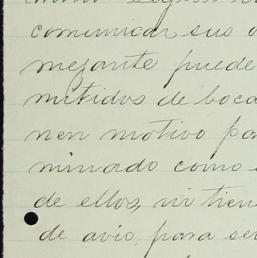 comunicar sus
mejante puede
mitidos de boca
nen motivo pa
minado como
de ellos, ni tien
de avio, para ser